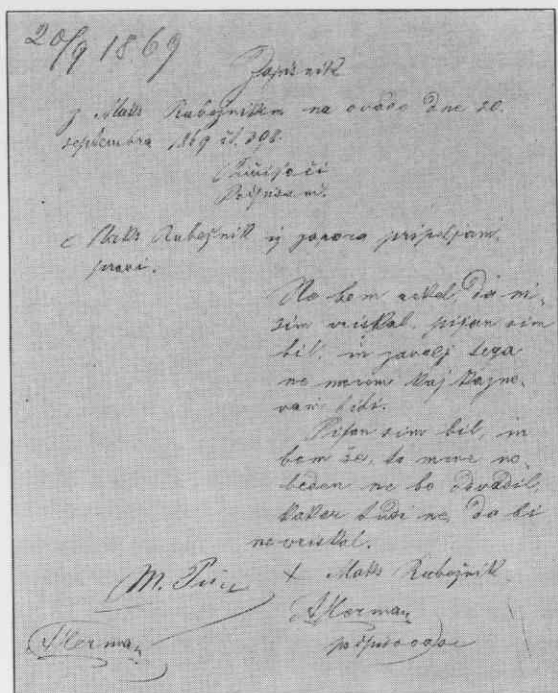 20/9 1869
Zapisnik
z Maks Rubežnikem na ovado dne 20.
septembra 1869 čt. 298.
Pričujoči
Podpisani.
Maks Rubežnik iz zapora pripeljani,
pravi.
No bom rekel, da ni-
sim vriskal, pijan sim
bil, in zavolj tega
ne morem kaj kazno-
van biti.
Pijan sim bil, in
bom še, to mene no-
beden ne bo odvadil,
kakor tudi ne, da bi
ne vriskal.
M.
+ Maks Rubežnik
AHerman
AHerman